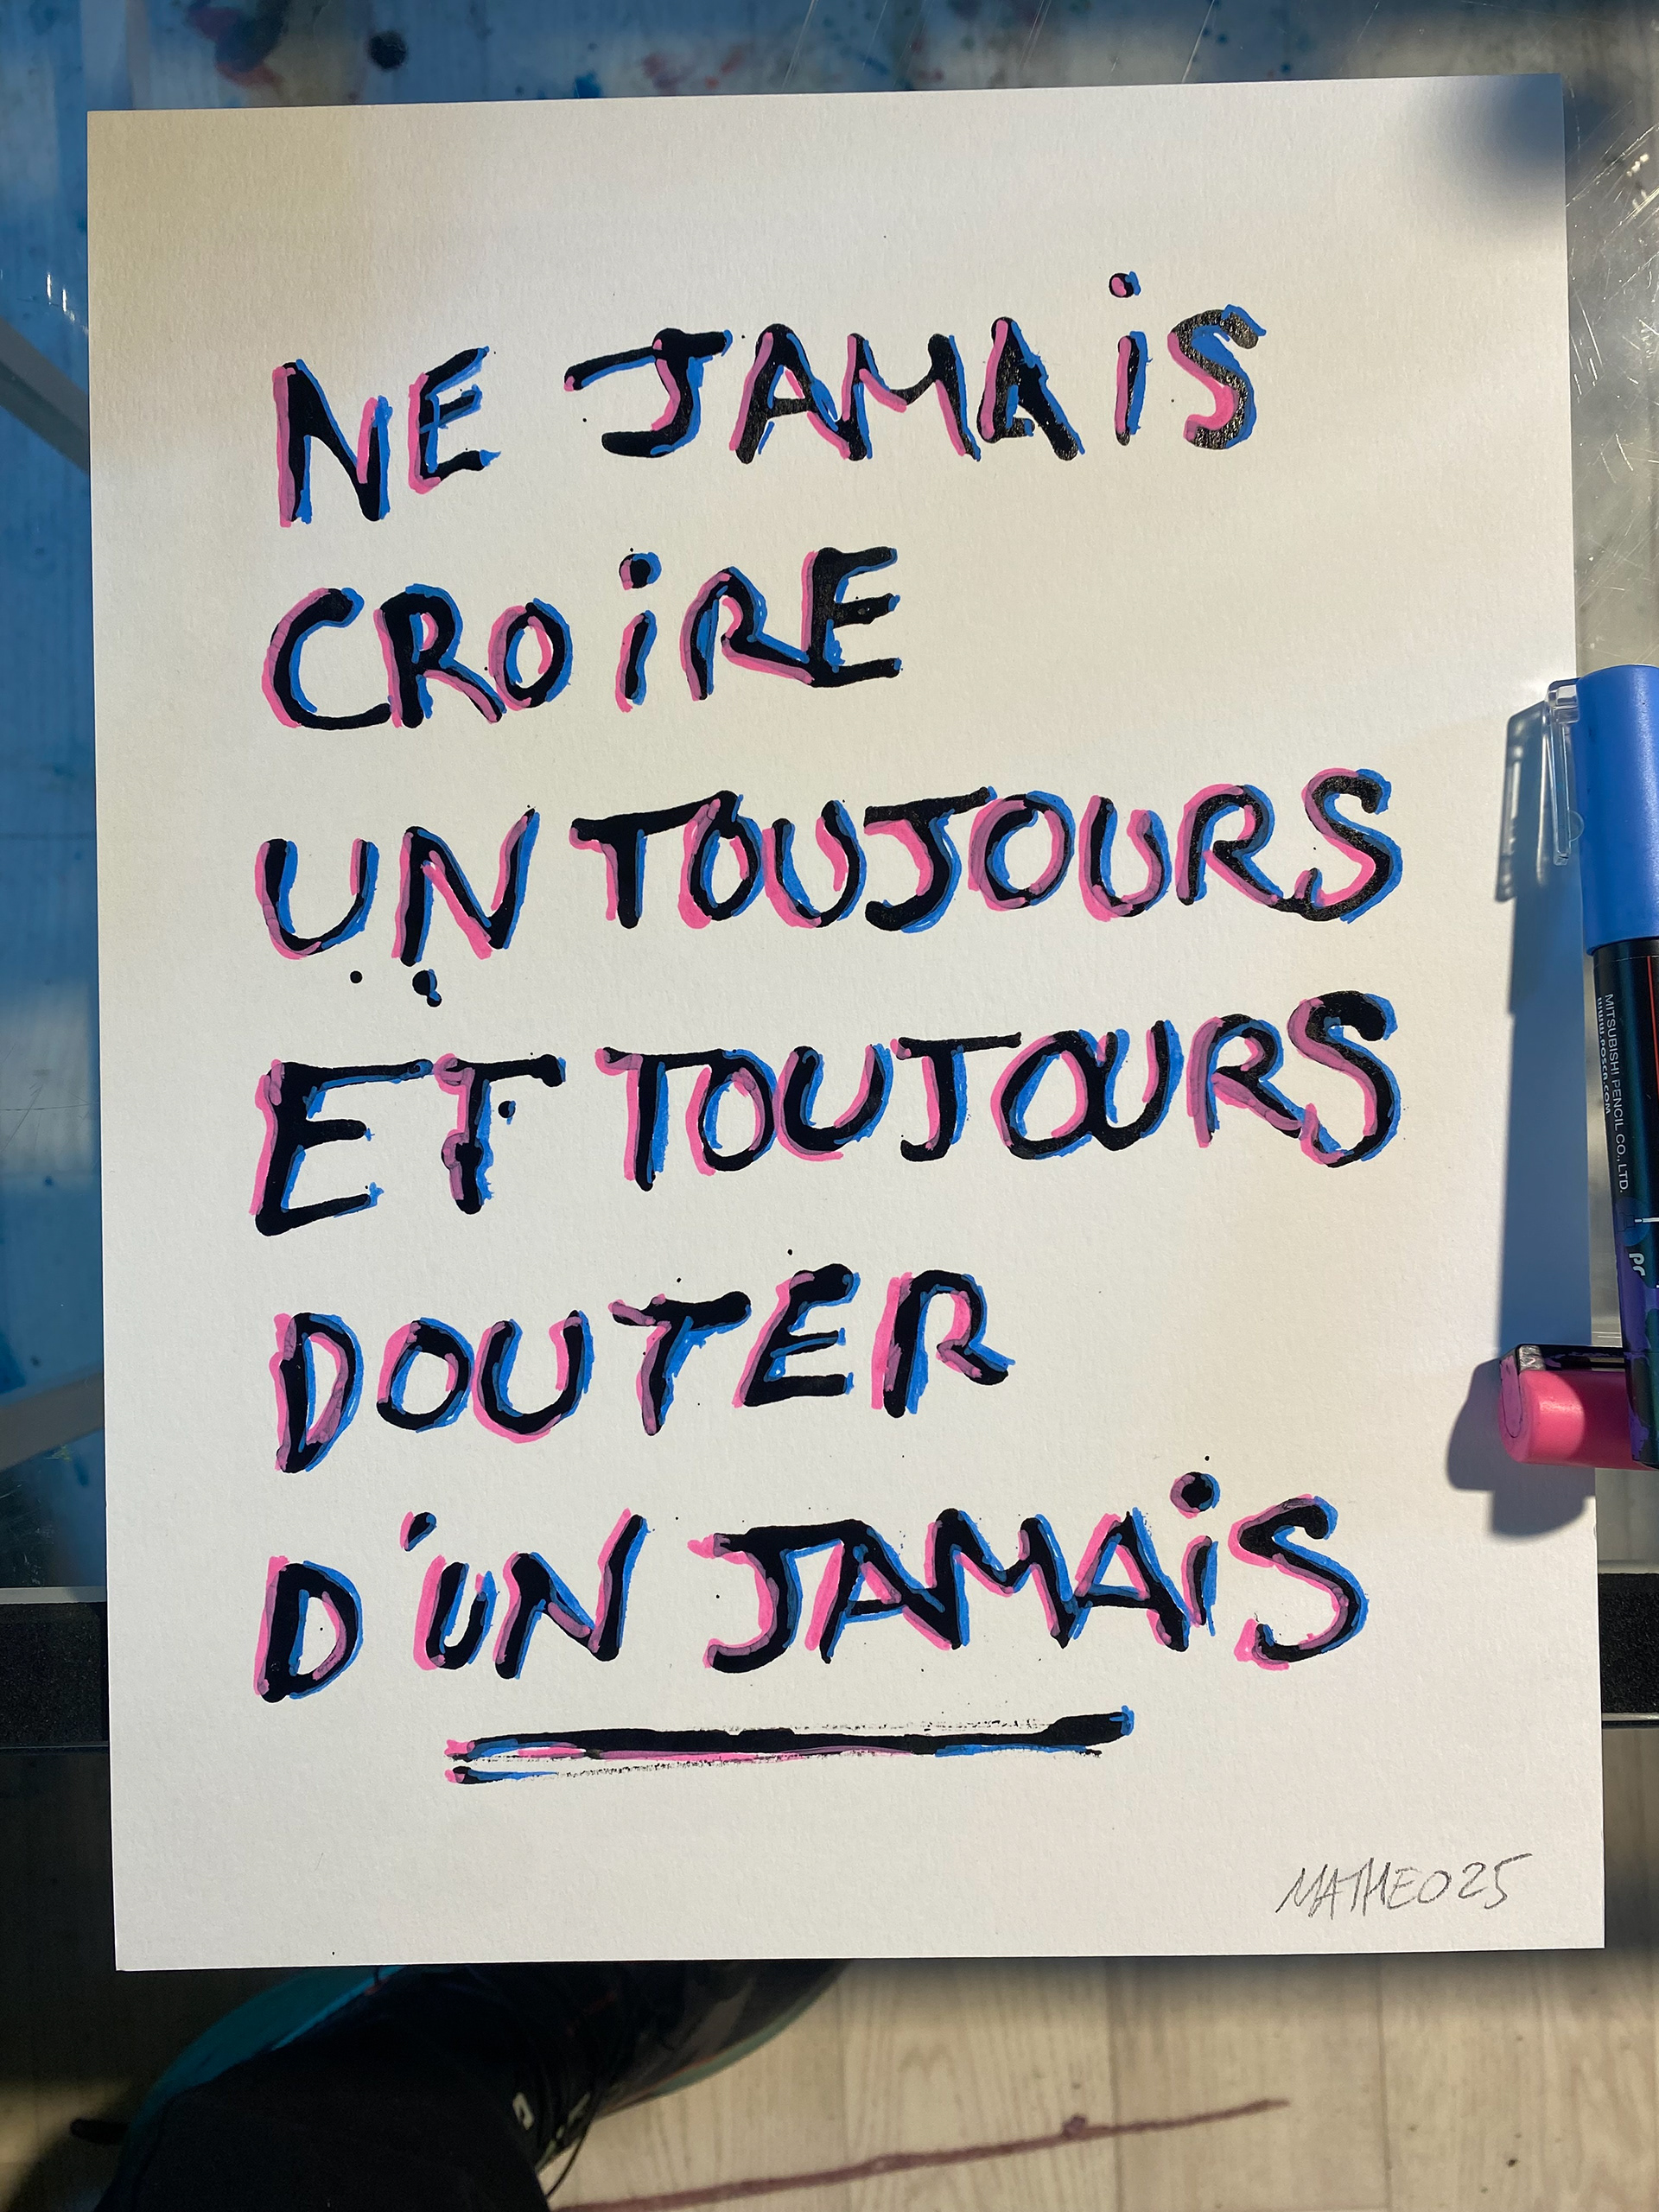 NE JAMAiS
CROiRE
UN TOUJOURS
ET TOUJOURS
DOUTER
D'UN JAMAiS
MATHEO 25
MITSUBISHI PENCIL CO., LTD.
www.POSCA.COM
PC